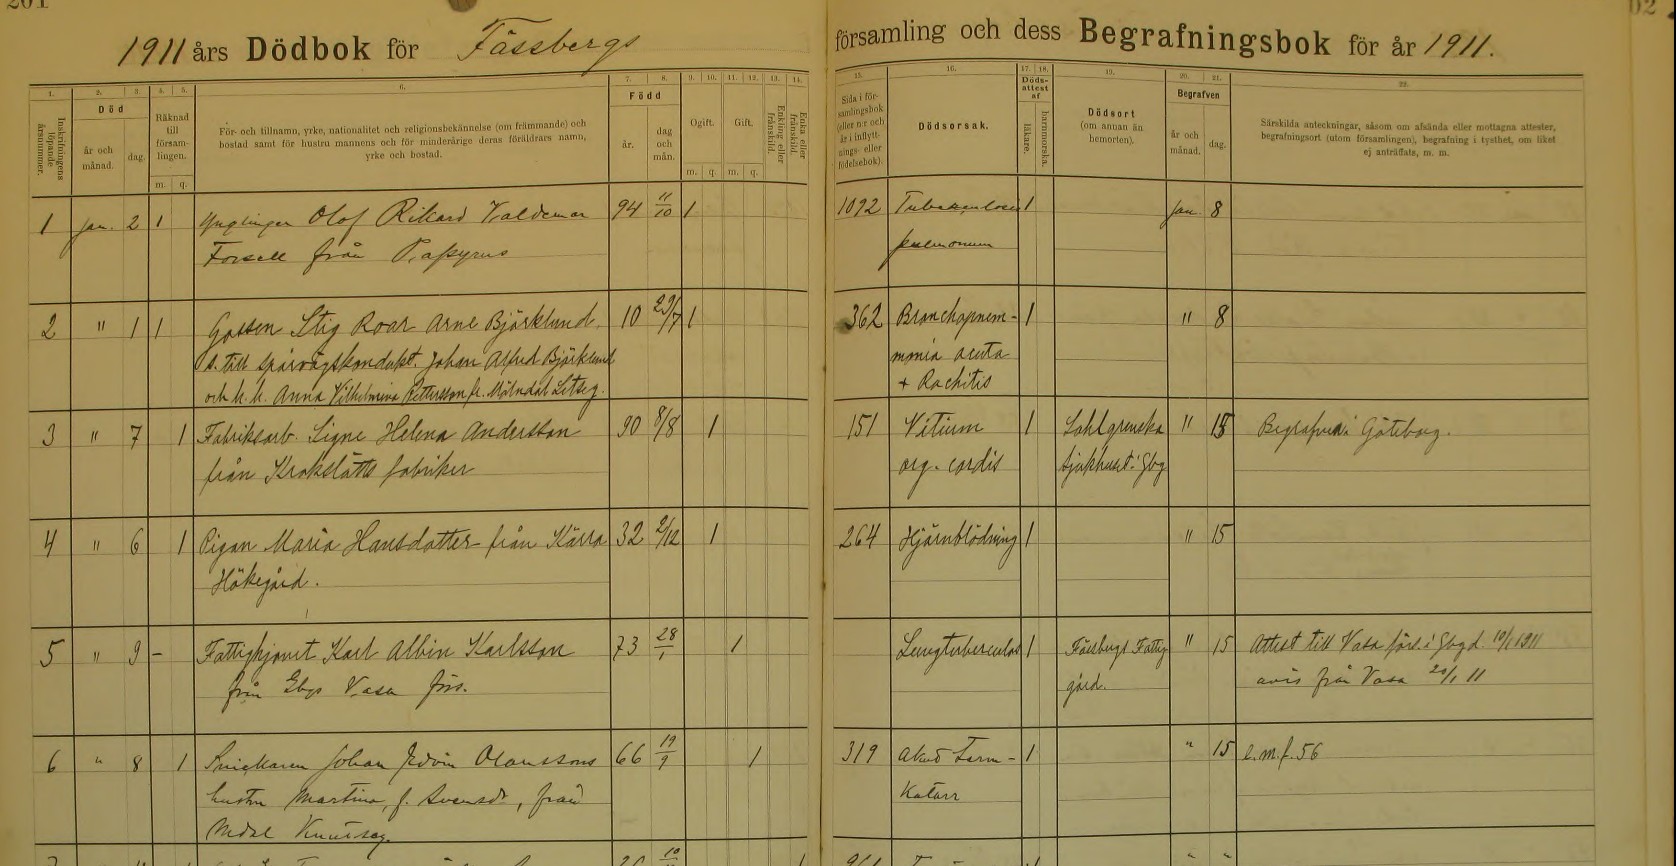 201
1911 års Dödbok för Fässbergs
församling och dess Begrafningsbok för år 1911.
02
1. 2. 3. 4. 5. 6. 7. 8. 9. 10. 11. 12. 13. 14.
15. 16. 17. 18. 19. 20. 21. 22.
Inskrifningens löpande årsnummer.
Död
år och månad.
dag.
Räknad till församlingen.
m. q.
För- och tillnamn, yrke, nationalitet och religionsbekännelse (om främmande) och
bostad samt för hustru mannens och för minderårige deras föräldrars namn,
yrke och bostad.
Född
år.
dag och mån.
Ogift.
m. q.
Gift.
m. q.
Enkling eller frånskild.
Enka eller frånskild.
Sida i församlingsbok (eller n:r och år i inflyttnings- eller födelsebok).
Dödsorsak.
Dödsattest af
läkare.
barnmorska.
Dödsort
(om annan än hemorten).
Begrafven
år och månad.
dag.
Särskilda anteckningar, såsom om afsända eller mottagna attester,
begrafningsort (utom församlingen), begrafning i tysthet, om liket
ej anträffats, m. m.
1 Jan. 2 1 Ynglingen Olof Rikard Valdemar 94 11/10 1 1092 Tuberkulosis 1 Jan. 8
Forsell från Papyrus pulmonum
2 " 1 1 Gossen Stig Roar Arne Björklund. 10 29/7 1 362 Bronchopneum- 1 " 8
s. till spårvägskondukt. Johan Alfred Björklund monia acuta
och h. h. Anna Vilhelmina Pettersson fr. Mölndal Letseg. + Rachitis
3 " 7 1 Fabriksarb. Signe Helena Andersson 90 8/8 1 151 Vitium 1 Sahlgrenska " 15 Begrafven i Göteborg.
från Krokslätts fabriker org. cordis sjukhuset i Gbg
4 " 6 1 Pigan Maria Hansdotter från Kärra 32 2/12 1 264 Hjärnblödning 1 " 15
Hökegård.
5 " 9 - Fattighjonet Karl Albin Karlsson 73 28/1 1 Lungtuberculos 1 Fässbergs Fattig " 15 Attest till Vasa förs. i Gbg d. 10/1 1911
från Gbgs Vasa förs. gård. avis från Vasa 20/1 11
6 " 8 1 Snickaren Johan Edvin Olaussons 66 19/9 1 319 Akut Tarm- 1 " 15 e.m.f. 56
hustru Martina, f. Svensdr, från Katarr
Mdal Kvarseg.